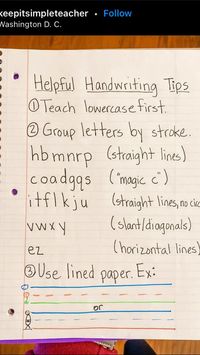 keepitsimpleteacher • Follow
Washington D. C.
Helpful Handwriting Tips
① Teach lowercase first.
② Group letters by stroke.
hbmnrp (straight lines)
coadgqs ("magic c")
itflkju (straight lines, no
vwxy (slant/diagonals)
ez (horizontal lines)
③ Use lined paper. Ex:
or